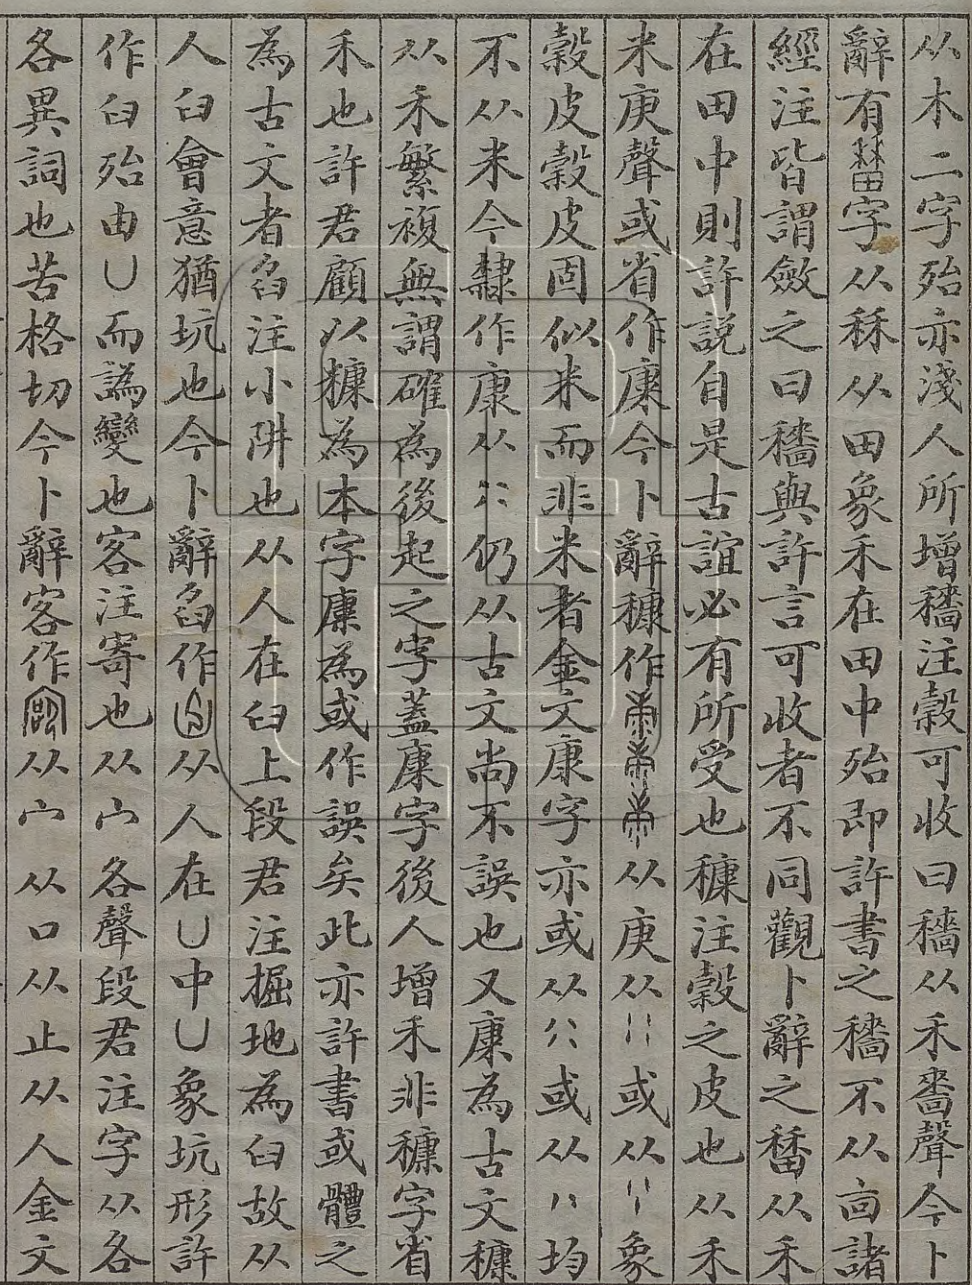 从木二字殆亦淺人所增穡注穀可收曰穡从禾嗇聲今卜
辭有字从秝从田象禾在田中殆即許書之穡不从㐭諸
經注皆謂斂之曰穡與許言可收者不同觀卜辭之从禾
在田中則許説自是古誼必有所受也穅注穀之皮也从禾
米庚聲或省作康今卜辭穅作从庚从或从象
穀皮穀皮固似米而非米者金文康字亦或从或从均
不从米今隸作康从仍从古文尚不誤也又康為古文穅
从禾繁複無謂確為後起之字蓋康字後人增禾非穅字省
禾也許君顧以穅為本字康為或作誤矣此亦許書或體之
為古文者臽注小阱也从人在臼上段君注掘地為臼故从
人臼會意猶坑也今卜辭臽作从人在凵中凵象坑形許
作臼殆由凵而譌變也客注寄也从宀各聲段君注字从各
各異詞也苦格切今卜辭客作从宀从口从止从人金文